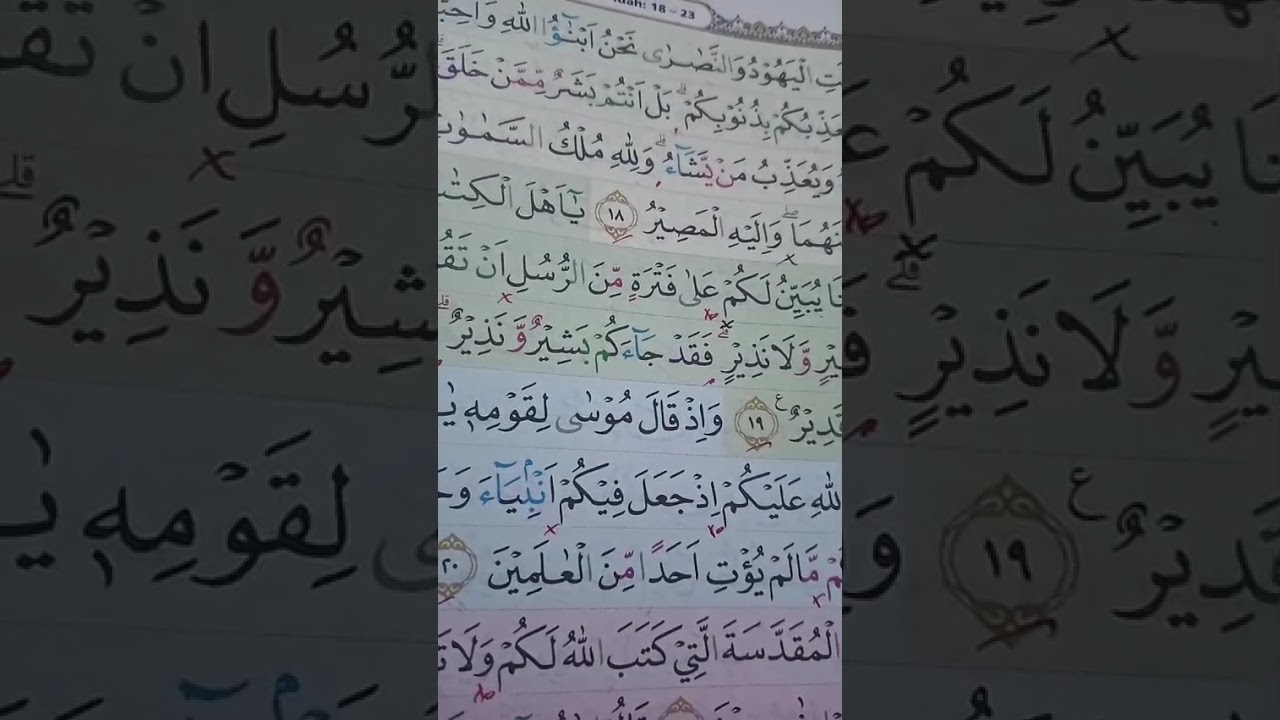 dah: 18 - 23
تِ الْيَهُوْدُ وَالنَّصٰرٰى نَحْنُ اَبْنٰۤؤُا اللّٰهِ وَاَحِبَّ
عَذِّبُكُمْ بِذُنُوْبِكُمْ ۗ بَلْ اَنْتُمْ بَشَرٌ مِّمَّنْ خَلَقَ
وَيُعَذِّبُ مَنْ يَّشَاۤءُ ۗ وَلِلّٰهِ مُلْكُ السَّمٰوٰتِ
نَهُمَا ۖ وَاِلَيْهِ الْمَصِيْرُ ١٨ يٰٓاَهْلَ الْكِتٰ
نَا يُبَيِّنُ لَكُمْ عَلٰى فَتْرَةٍ مِّنَ الرُّسُلِ اَنْ تَقُ
يْرٍ وَّلَا نَذِيْرٍ ۗ فَقَدْ جَاۤءَكُمْ بَشِيْرٌ وَّنَذِيْرٌ ۗ
قَدِيْرٌ ࣖ ١٩ وَاِذْ قَالَ مُوْسٰى لِقَوْمِهٖ يٰ
اللّٰهِ عَلَيْكُمْ اِذْ جَعَلَ فِيْكُمْ اَنْۢبِيَاۤءَ وَجَ
كُمْ مَّا لَمْ يُؤْتِ اَحَدًا مِّنَ الْعٰلَمِيْنَ ٢٠
الْمُقَدَّسَةَ الَّتِيْ كَتَبَ اللّٰهُ لَكُمْ وَلَا تَ